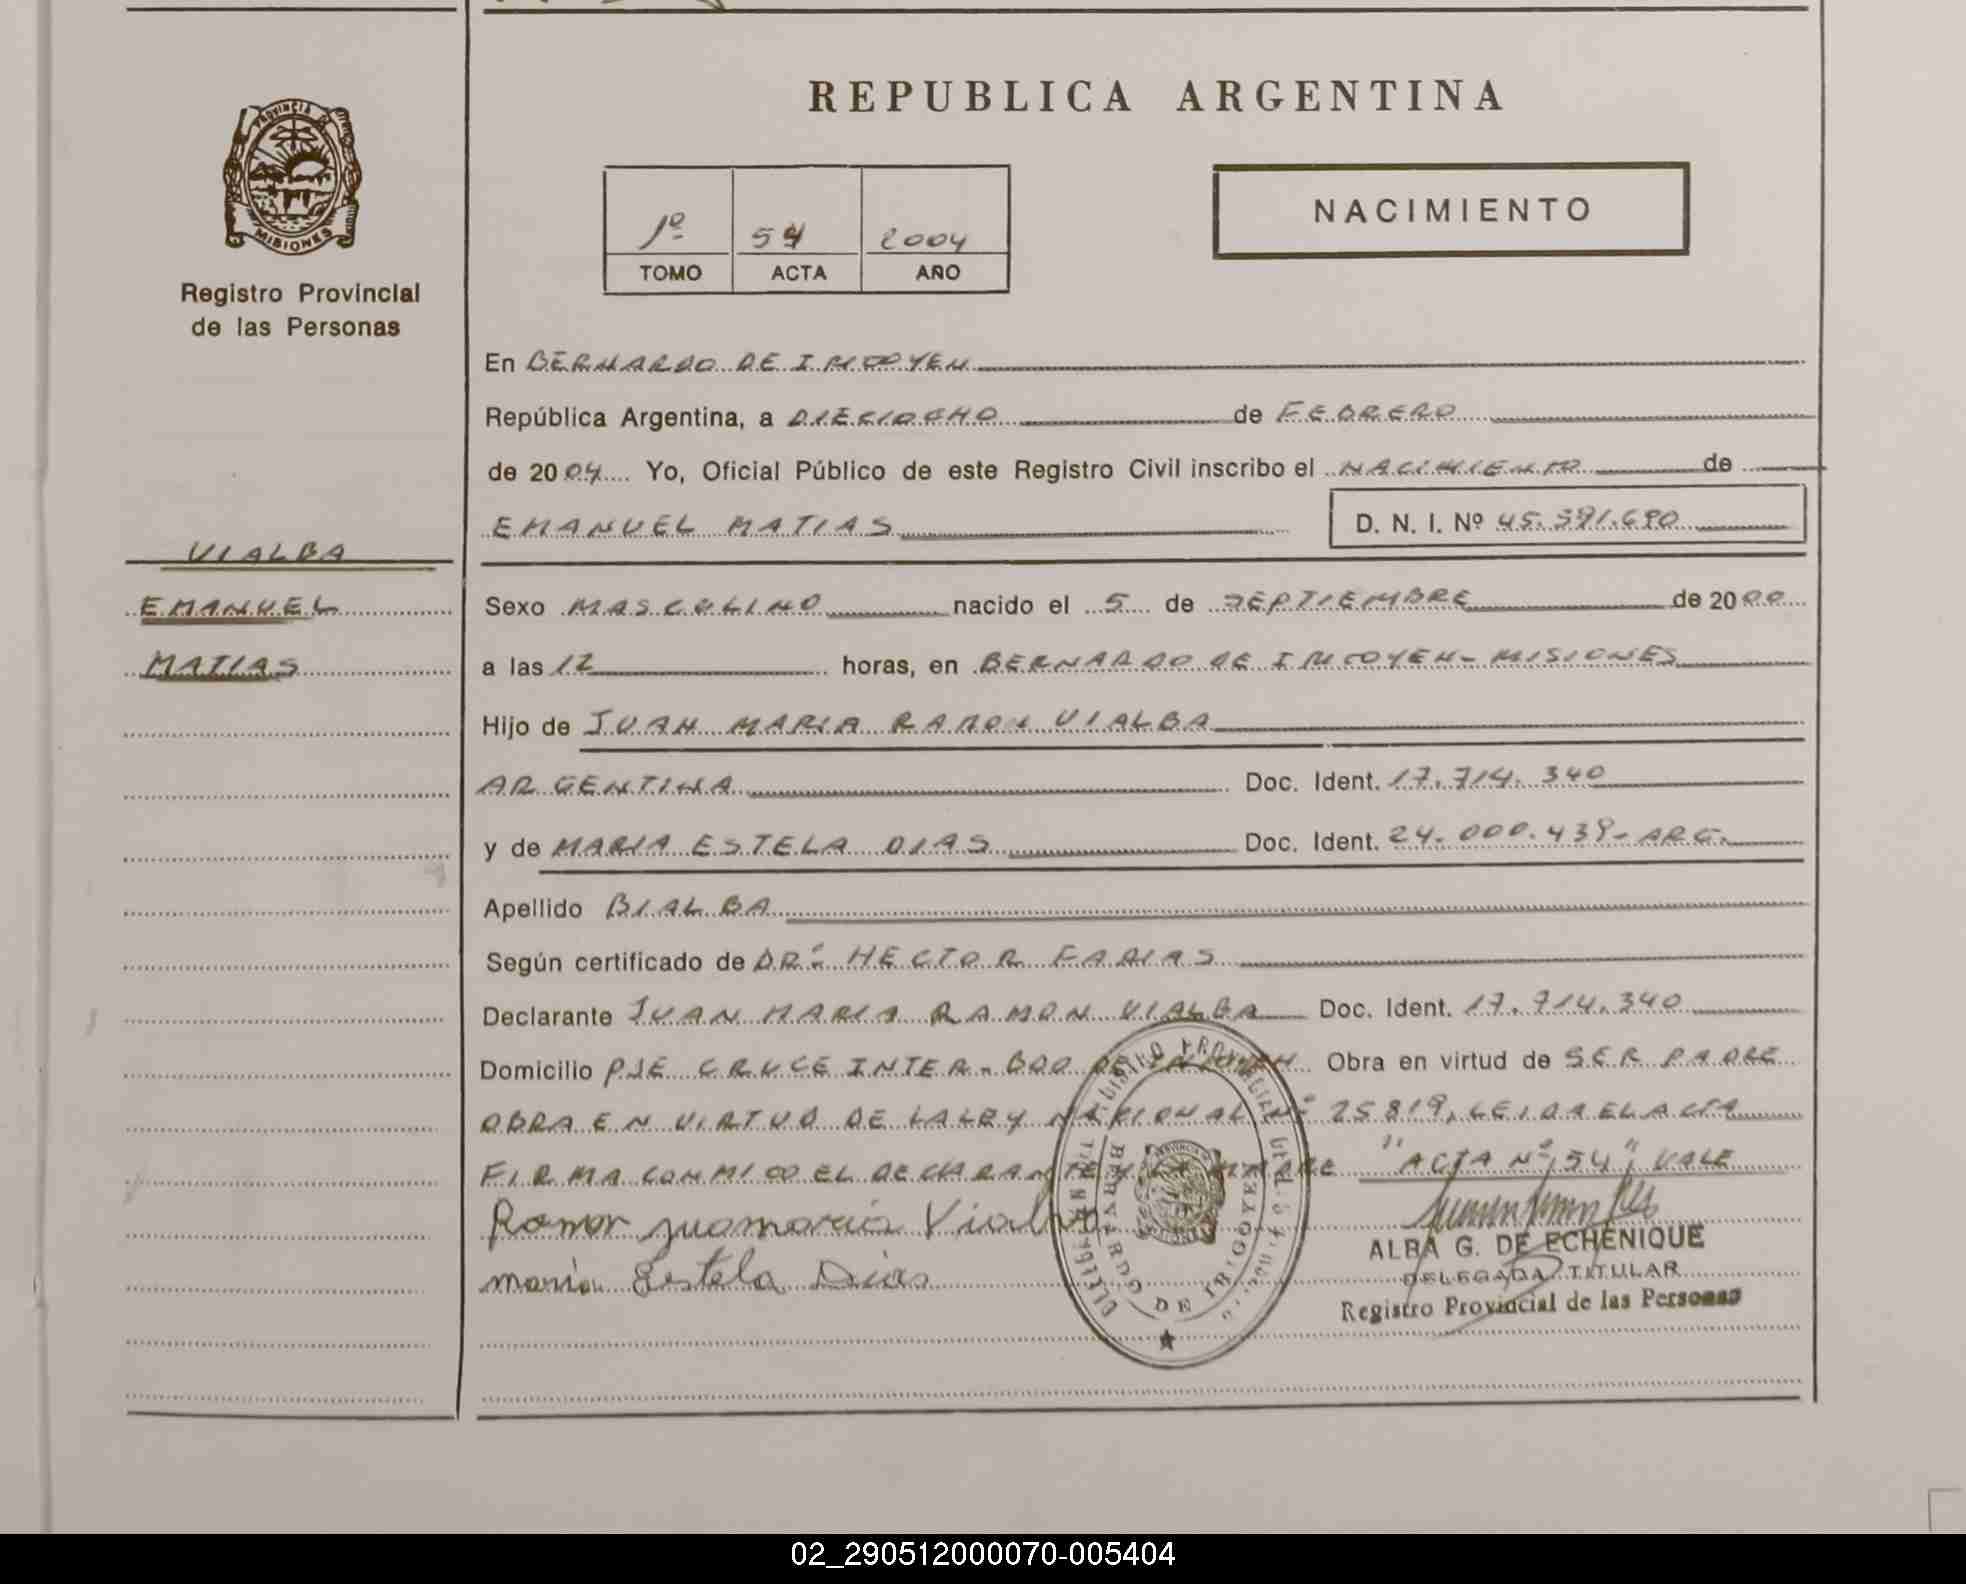 REPUBLICA ARGENTINA
PROVINCIA DE
MISIONES
Registro Provincial
de las Personas
1º 54 2004
TOMO ACTA AÑO
NACIMIENTO
En BERNARDO DE IRIGOYEN
República Argentina, a DIECIOCHO de FEBRERO
de 2004 Yo, Oficial Público de este Registro Civil inscribo el NACIMIENTO de
EMANUEL MATIAS D. N. I. Nº 45.391.690
VIALBA
EMANUEL
MATIAS
Sexo MASCULINO nacido el 5 de SEPTIEMBRE de 2000
a las 12 horas, en BERNARDO DE IRIGOYEN - MISIONES
Hijo de JUAN MARIA RAMON VIALBA
ARGENTINA Doc. Ident. 17.714.340
y de MARIA ESTELA DIAS Doc. Ident. 24.000.439 - ARG.
Apellido BIALBA
Según certificado de DR. HECTOR FARIAS
Declarante JUAN MARIA RAMON VIALBA Doc. Ident. 17.714.340
Domicilio PJE CRUCE INTER - BDO DE IRIGOYEN Obra en virtud de SER PADRE
OBRA EN VIRTUD DE LA LEY NACIONAL Nº 25819, LEIDA EL ACTA
FIRMA CONMIGO EL DECLARANTE Y LA MADRE "ACTA Nº 54"; VALE
Ramon juan maria Vialba
maria Estela Dias
BERNARDO DE IRIGOYEN
ALBA G. DE ECHENIQUE
DELEGADA TITULAR
Registro Provincial de las Personas
02_290512000070-005404